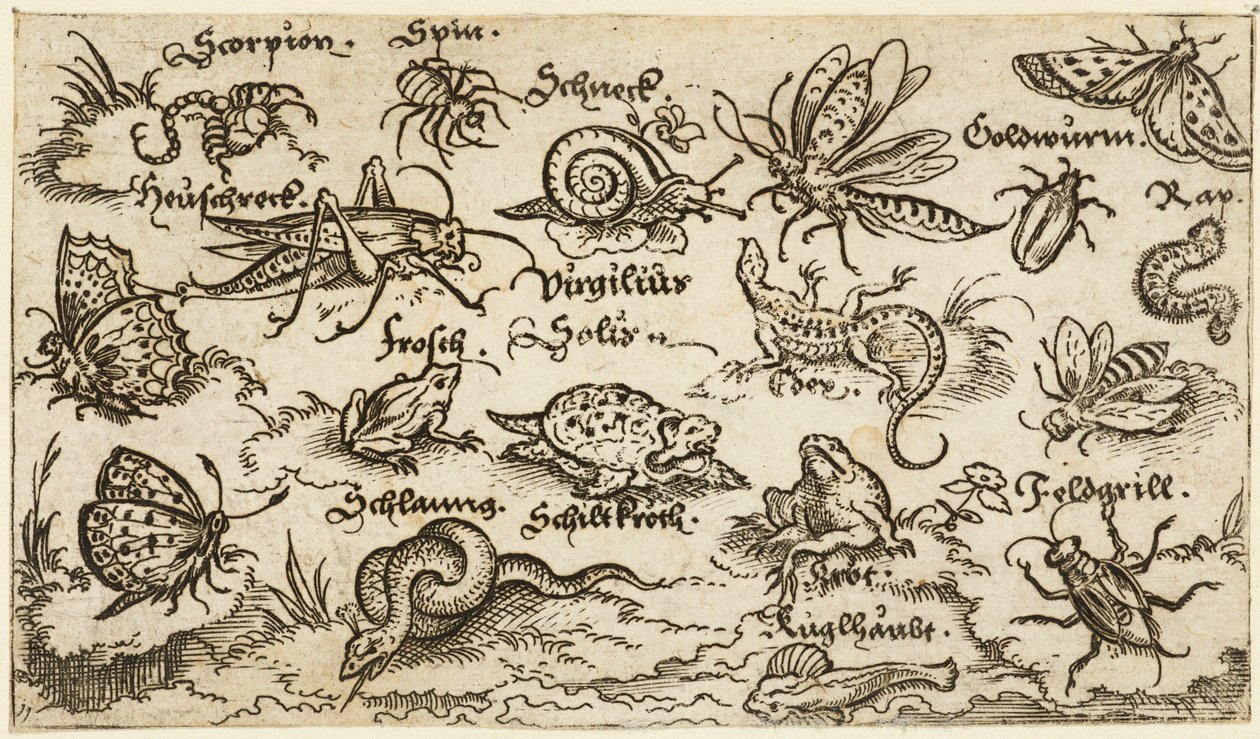 Scorpion.
Spin.
Schneck.
Goldwurm.
Rap.
Heuschreck.
Virgilius
Solis
Frosch.
Edex.
Feldgrill.
Schlanng.
Schiltkroth.
Krot.
Kuglhaubt.